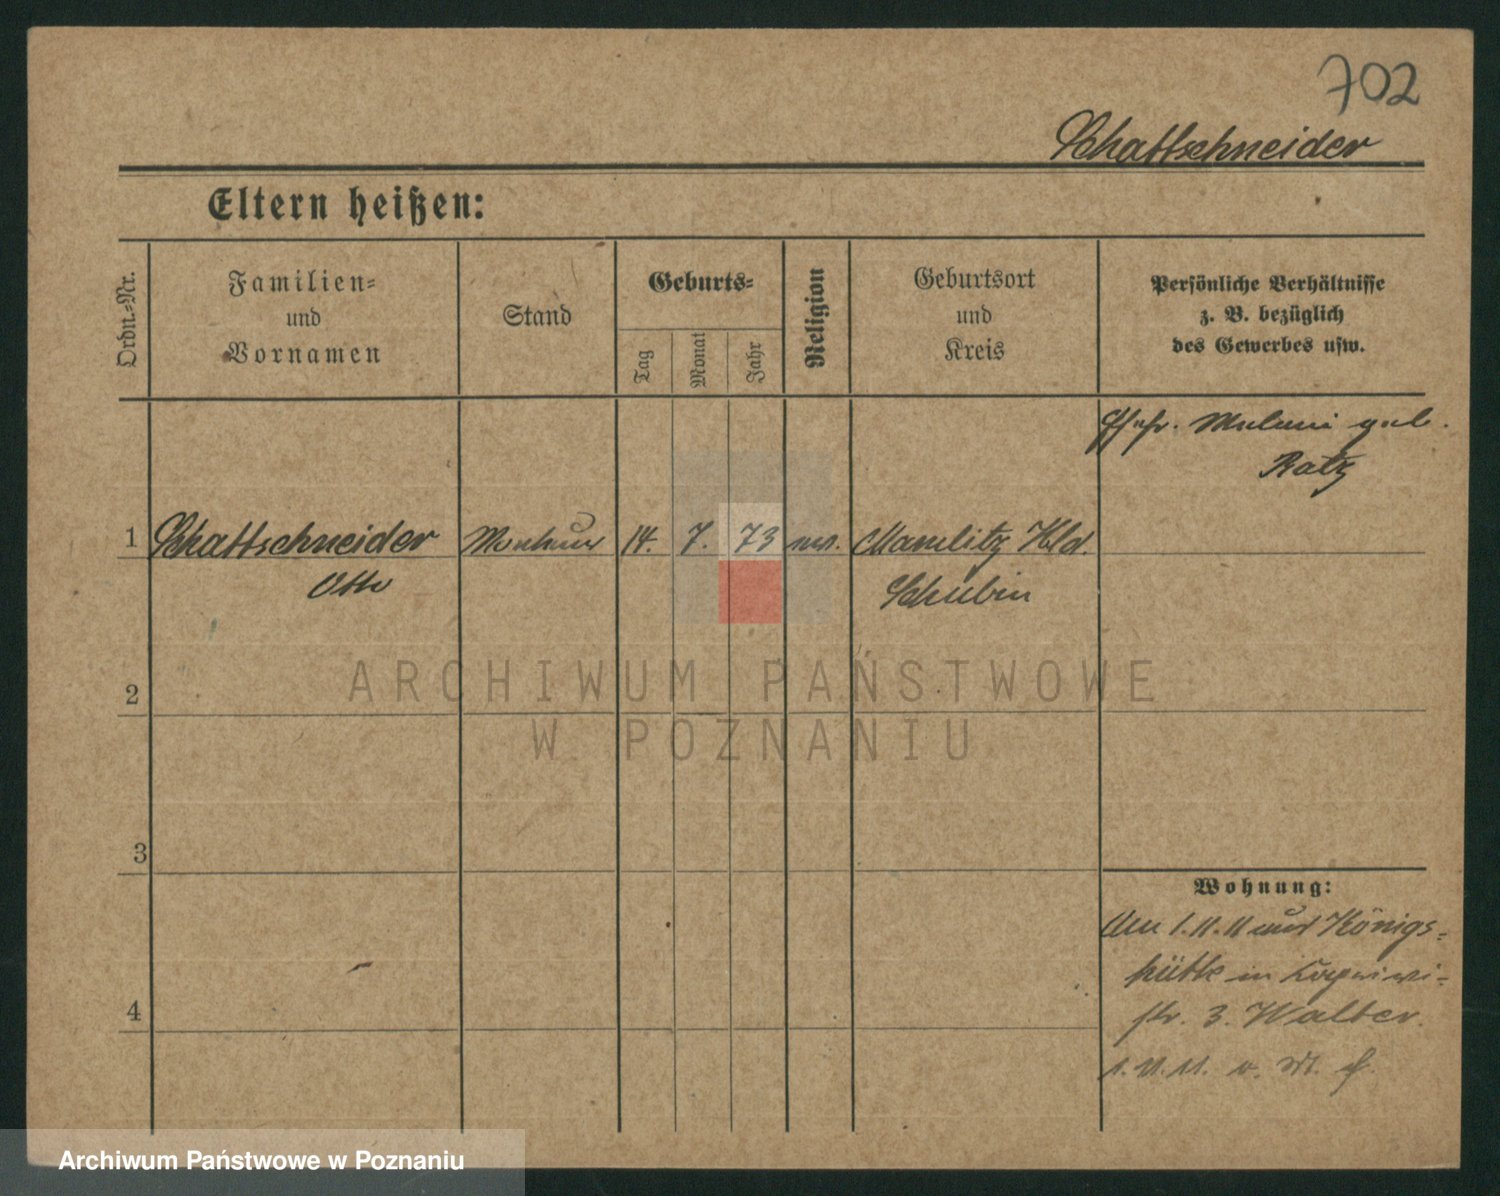 702
Schattschneider
Eltern heißen:
Ordn.-Nr.
Familien-
und
Vornamen
Stand
Geburts-
Tag
Monat
Jahr
Religion
Geburtsort
und
Kreis
Persönliche Verhältnisse
z. B. bezüglich
des Gewerbes usw.
geb.
Ratz
1 Schattschneider Monteur 14. 7. 73 Mamlitz
Otto Schubin
2
3
4
Wohnung:
Am 1.11.11 aus Königs-
hütte in
str. 3. Walter.
ARCHIWUM PAŃSTWOWE
W POZNANIU
Archiwum Państwowe w Poznaniu